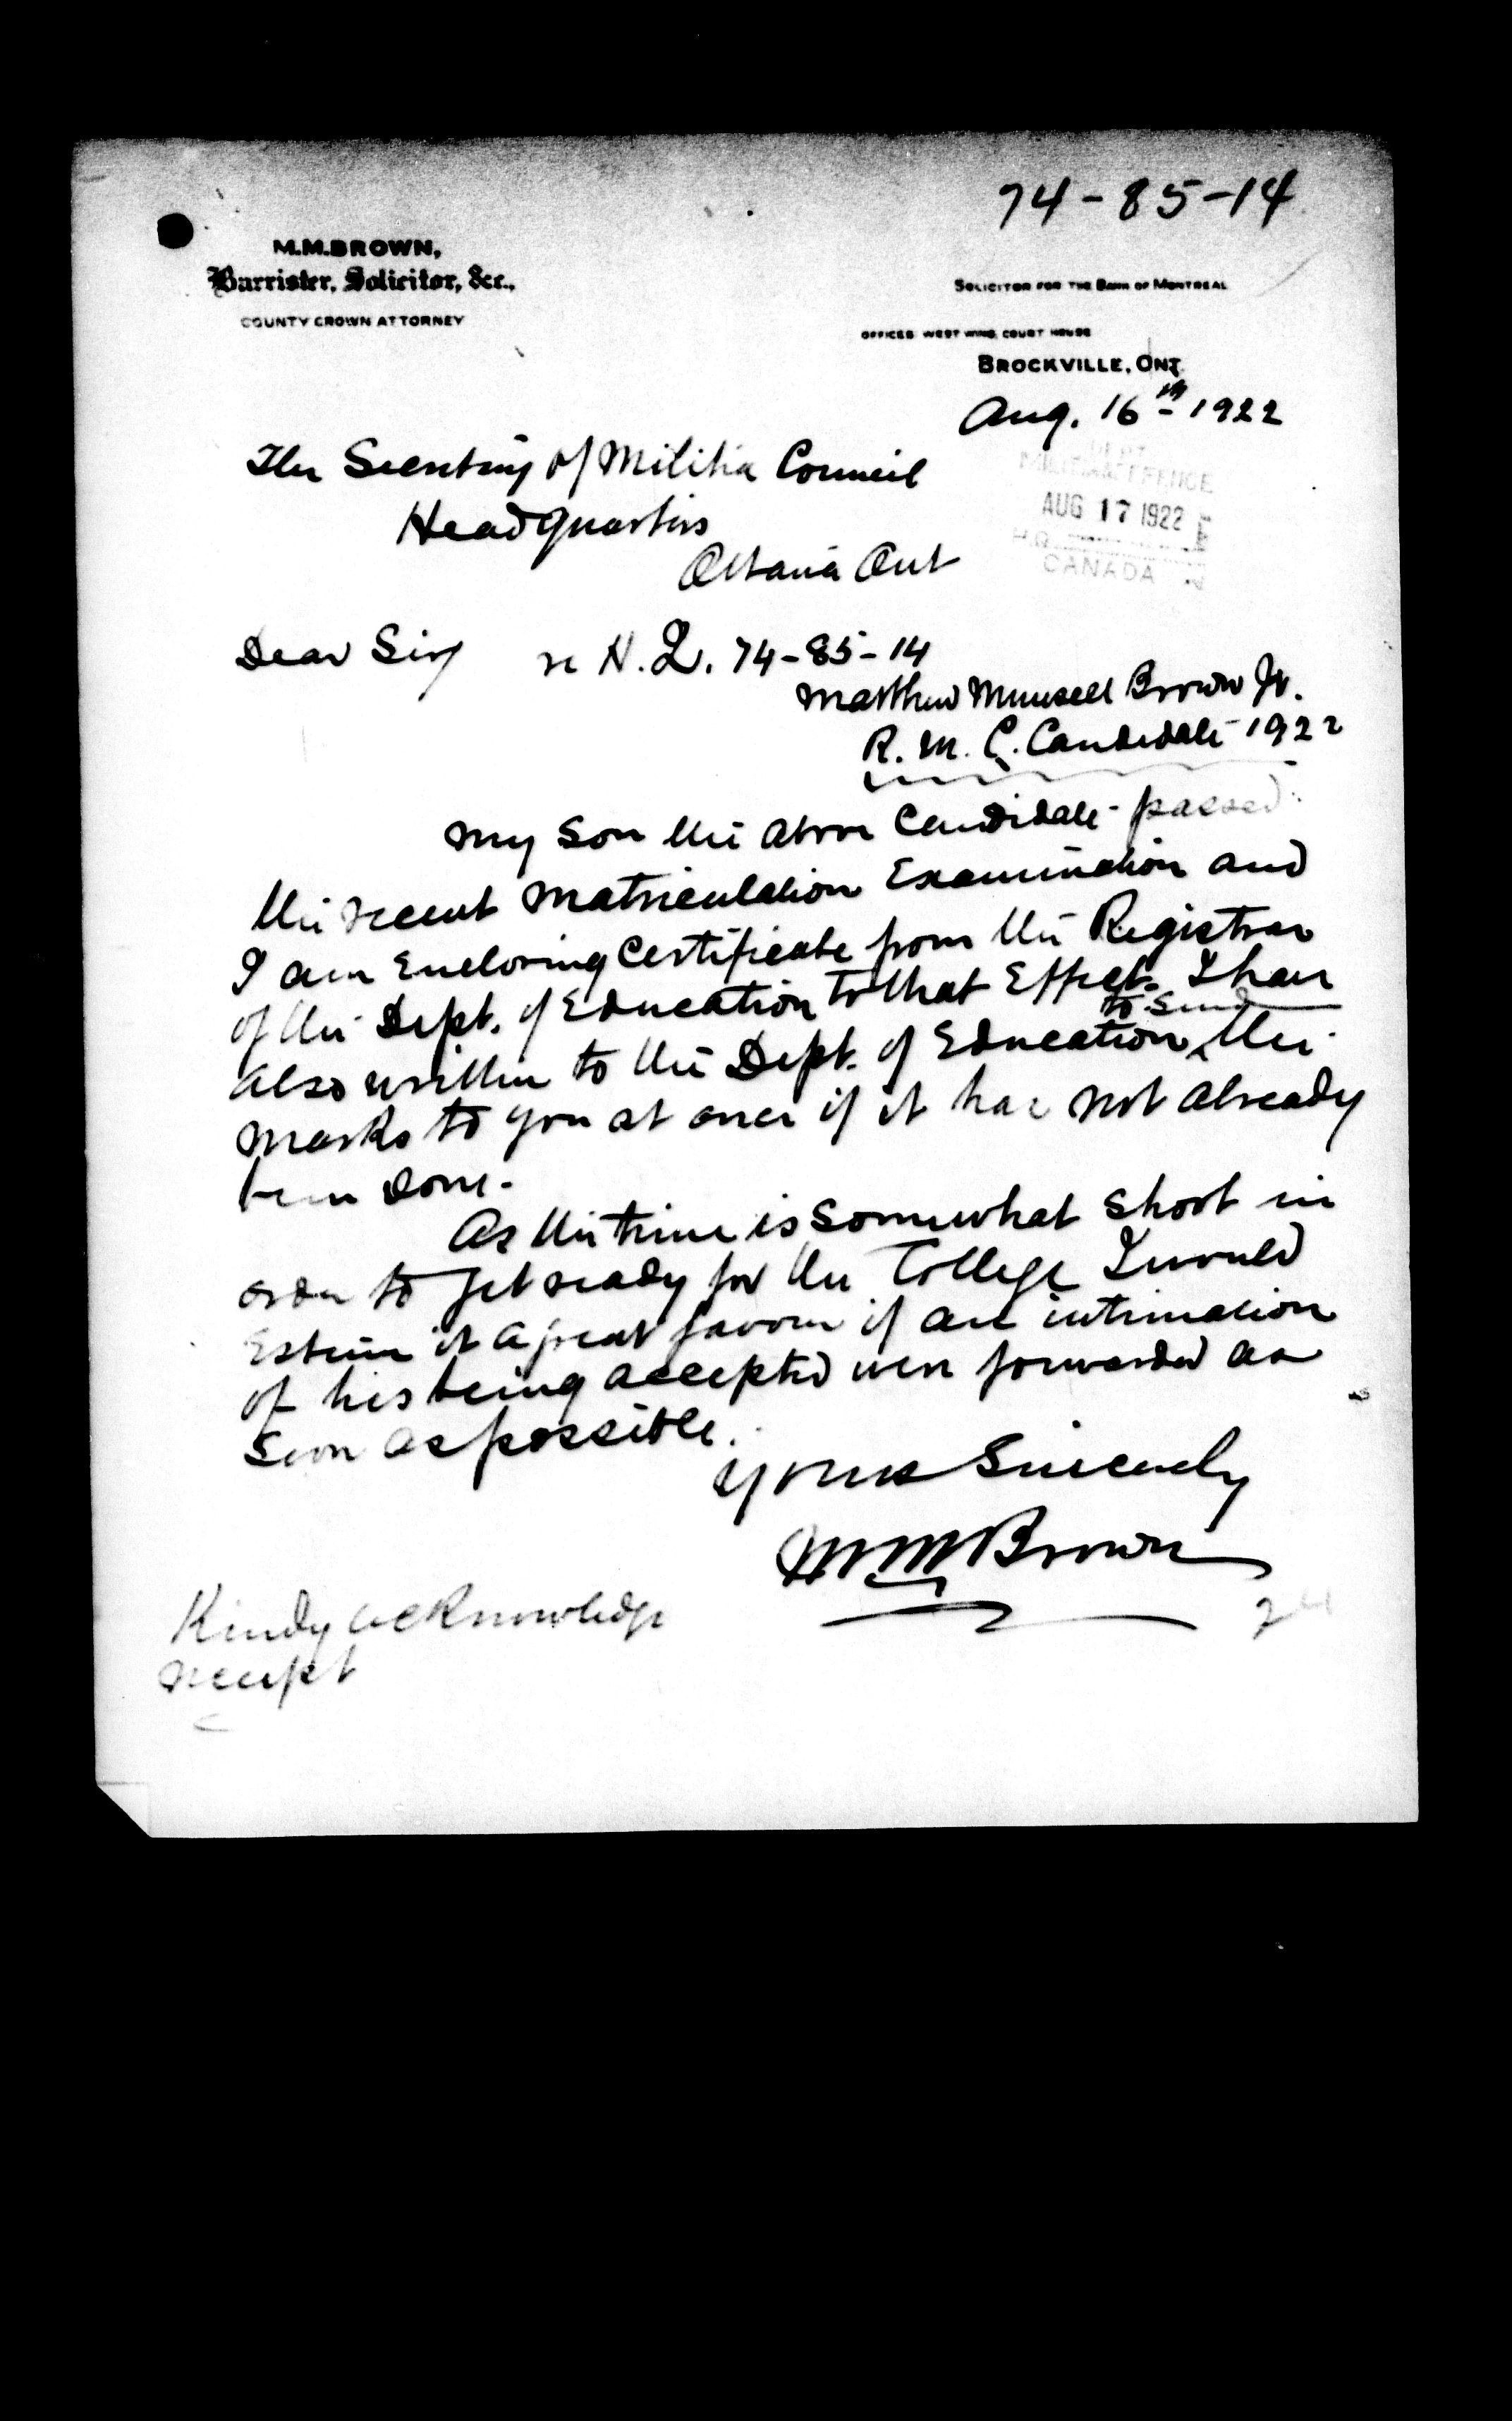 74-85-14
M.M.BROWN,
Barrister, Solicitor, &c.,
COUNTY CROWN ATTORNEY
SOLICITOR FOR THE BANK OF MONTREAL
OFFICES WEST WING COURT HOUSE
BROCKVILLE, ONT.
Aug. 16th 1922
The Secretary of Militia Council
Headquarters
Ottawa Ont
DEPT
MILITIA & DEFENCE
AUG 17 1922
H.Q.
CANADA
Dear Sir re H.Q. 74-85-14
Matthew Munsell Brown Jr.
R. M. C. Candidate 1922
My son the above Candidate passed
the recent Matriculation Examination and
I am Enclosing Certificate from the Registrar
of the Dept. of Education to that Effect. I have
to send
also written to the Dept. of Education the
marks to you at once if it has not already
been done.
As the time is somewhat short in
order to get ready for the College I would
Esteem it a great favour if an intimation
of his being accepted were forwarded as
soon as possible.
Yours Sincerely
M M Brown
Kindy acknowledge
receipt